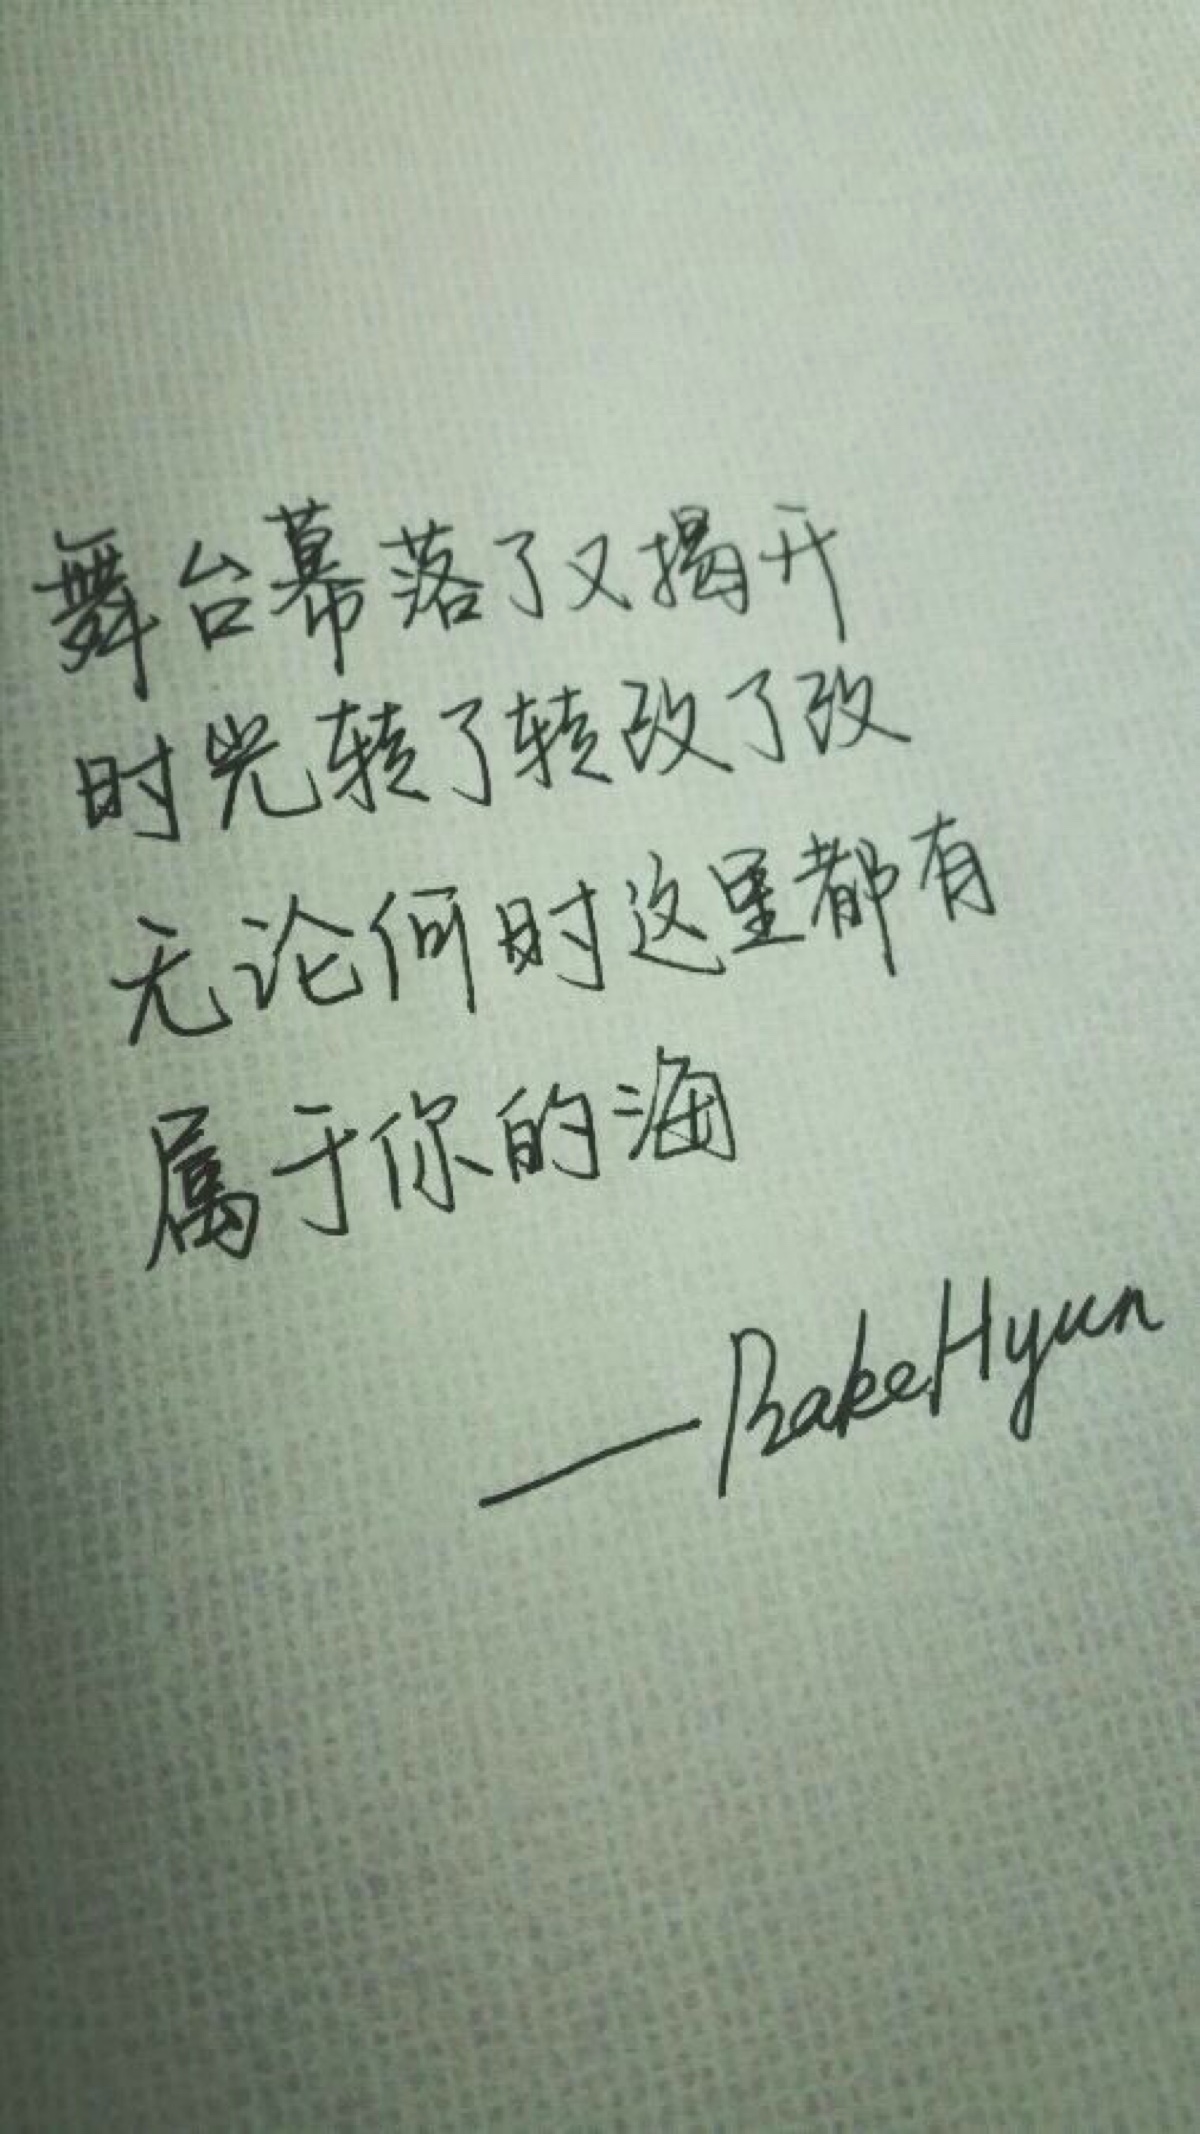 舞台幕落了又揭开
时光转了转改了改
无论何时这里都有
属于你的海
——BakeHyun